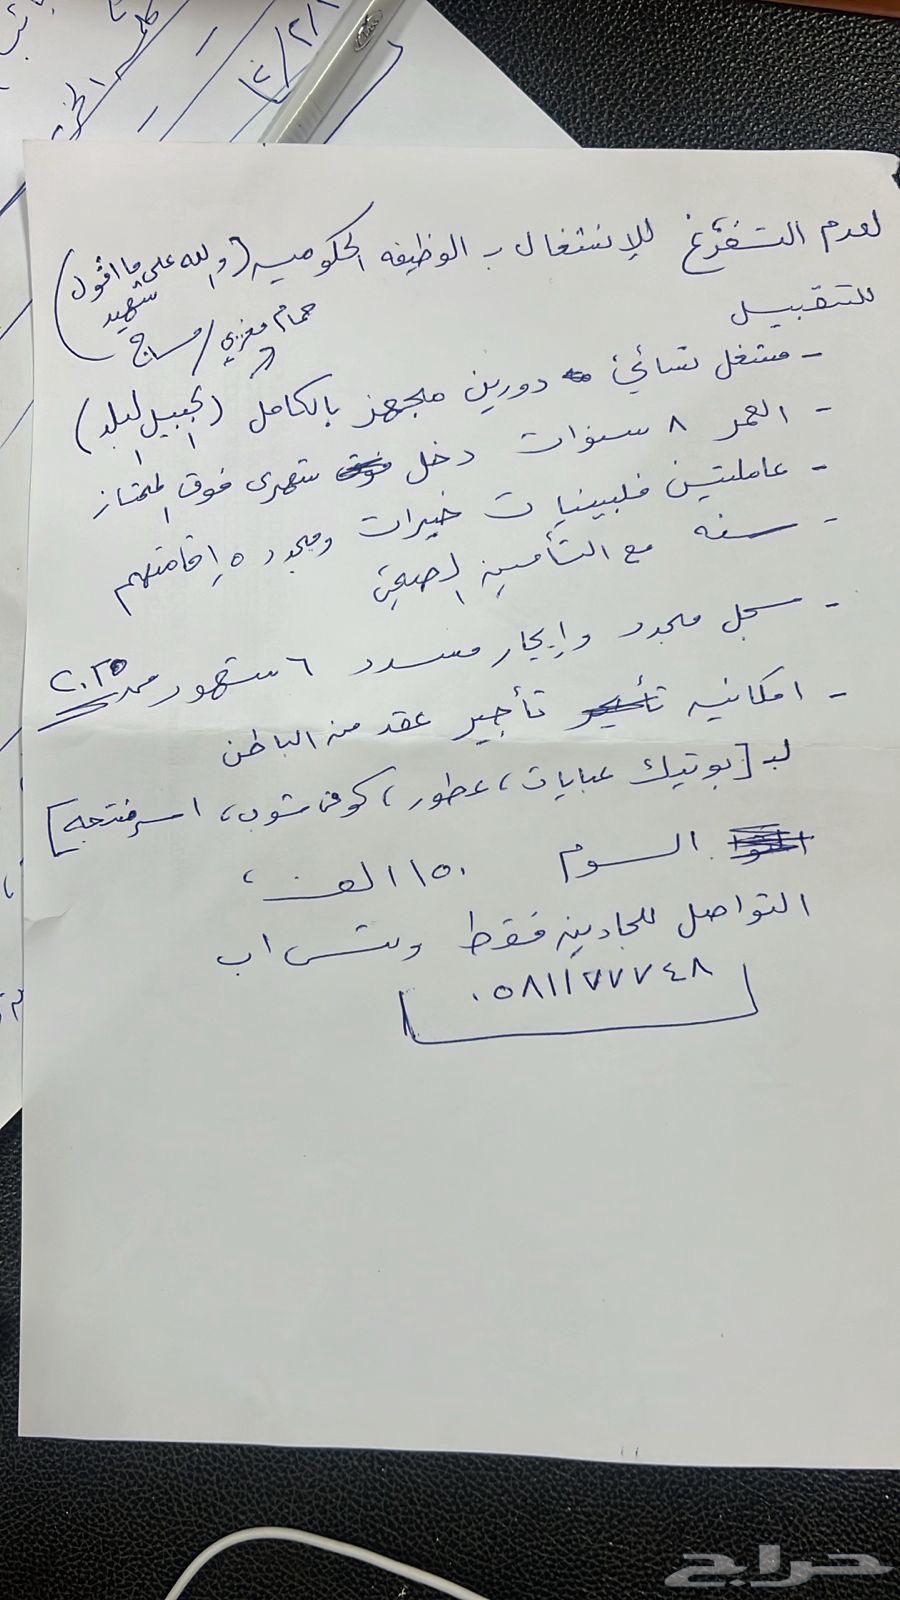 لعدم التفرّغ للإنشغال بـ الوظيفه الحكوميه (والله على ما أقول شهيد)
للتقبيل
حمام مغربي / مساج
- مشغل نسائي دورين مجهز بالكامل (الجبيل البلد)
- العمر ٨ سنوات دخل شهري فوق الممتاز
- عاملتين فلبينيات خبرات ومجدده إقامتهم
- سنه مع التأمين الصحي
- سجل مجدد وإيجار مسدد ٦ شهور من ٢٠٢٥
- امكانيه تأجير عقد من الباطن
لـ [بوتيك عبايات، عطور، كوفي شوب، اسفنجه]
السوم ١٥٠ الف،
التواصل للجادين فقط وتس اب
٠٥٨١١٧٧٧٤٨
١٢/٢/١
كلمه
حراج